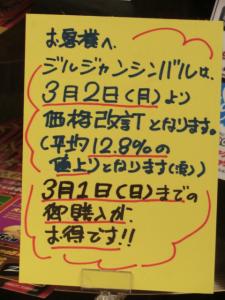 お客様へ
ジルジャンシンバルは、
3月2日(月)より
価格改訂となります。
(平均12.8%の
値上りとなります(涙))
3月1日(日)までの
御購入が、
お得です!!